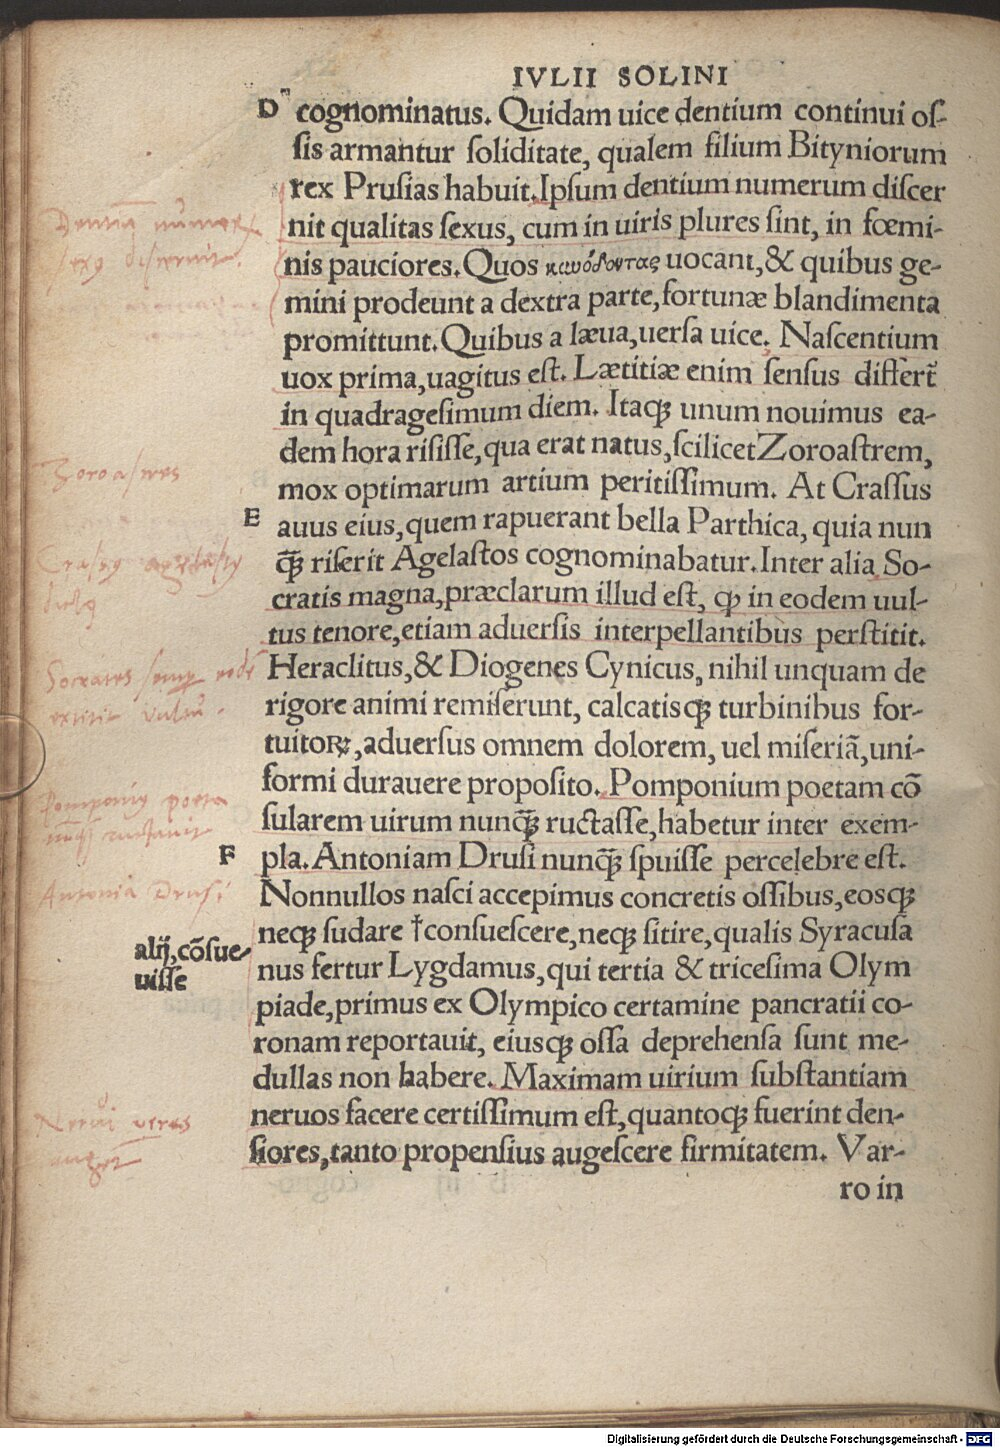 IVLII SOLINI
D cognominatus. Quidam uice dentium continui oſ-
ſis armantur ſoliditate, qualem filium Bityniorum
rex Pruſias habuit. Ipſum dentium numerum diſcer
nit qualitas ſexus, cum in uiris plures ſint, in fœmi-
nis pauciores. Quos κυνόδοντας uocant, & quibus ge-
mini prodeunt a dextra parte, fortunæ blandimenta
promittunt. Quibus a læua, uerſa uice. Naſcentium
uox prima, uagitus eſt. Lætitiæ enim ſenſus differt̃
in quadrageſimum diem. Itaqꝫ unum nouimus ea-
dem hora riſiſſe, qua erat natus, ſcilicet Zoroaſtrem,
mox optimarum artium peritiſſimum. At Craſſus
E auus eius, quem rapuerant bella Parthica, quia nun
q̃ꝫ riſerit Agelaſtos cognominabatur. Inter alia So-
cratis magna, præclarum illud eſt, ꝙ in eodem uul-
tus tenore, etiam aduerſis interpellantibus perſtitit.
Heraclitus, & Diogenes Cynicus, nihil unquam de
rigore animi remiſerunt, calcatisqꝫ turbinibus for-
tuitoꝝ, aduerſus omnem dolorem, uel miſeriã, uni-
formi durauere propoſito. Pomponium poetam cõ
ſularem uirum nunq̃ꝫ ructaſſe, habetur inter exem-
F pla. Antoniam Druſi nunq̃ꝫ ſpuiſſe percelebre eſt.
Nonnullos naſci accepimus concretis oſſibus, eosqꝫ
neqꝫ ſudare †conſueſcere, neqꝫ ſitire, qualis Syracuſa
nus fertur Lygdamus, qui tertia & triceſima Olym
piade, primus ex Olympico certamine pancratii co-
ronam reportauit, eiusqꝫ oſſa deprehenſa ſunt me-
dullas non habere. Maximam uirium ſubſtantiam
neruos facere certiſſimum eſt, quantoqꝫ fuerint den-
ſiores, tanto propenſius augeſcere firmitatem. Var-
ro in
alij, cõſue-
uiſſe
Zoroaſtres
Socrates
extitit vultu.
Pomponius poeta
Antonia Druſi
Nerui
Digitalisierung gefördert durch die Deutsche Forschungsgemeinschaft - DFG